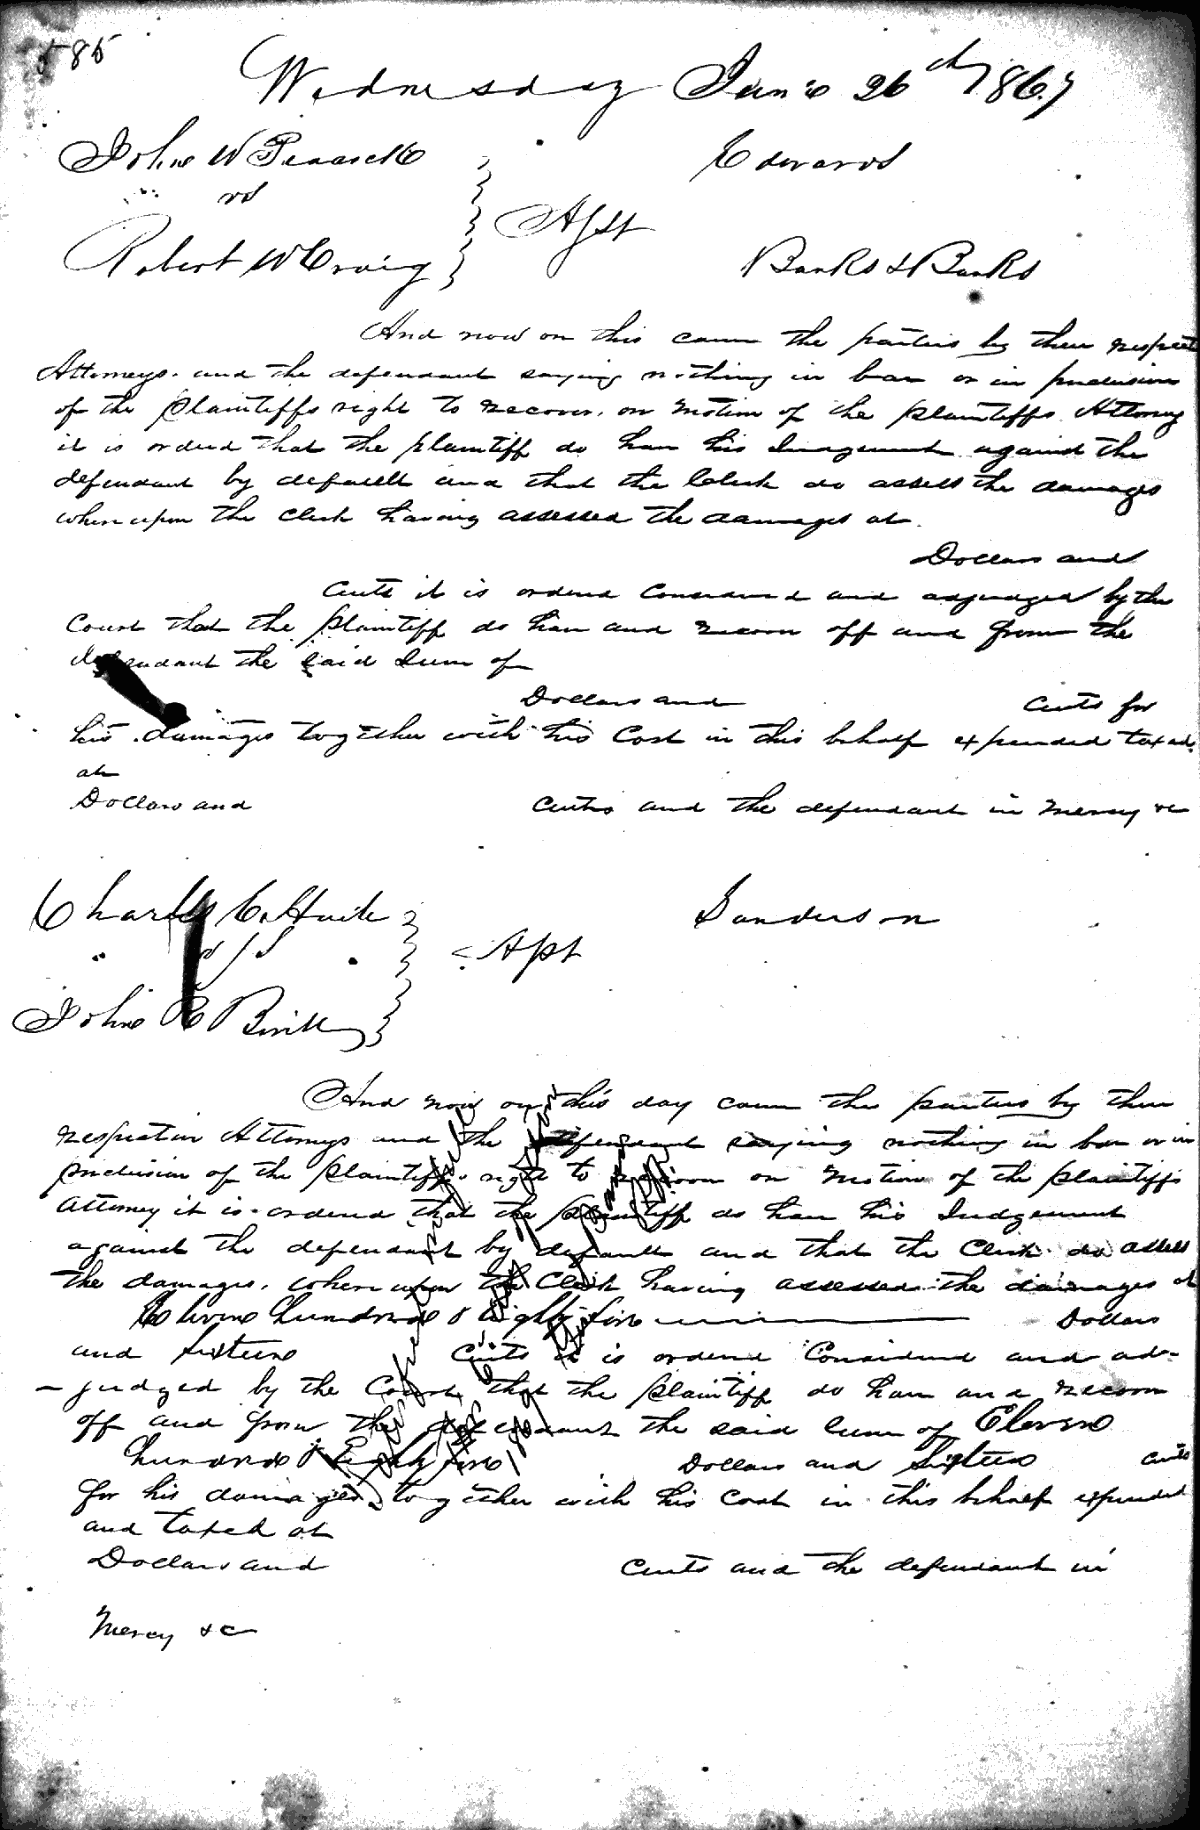 585
Wednesday June 26th 1867
John W Peacock
vs
Robert W Craig
Asst
Edwards
Banks & Banks
And now on this came the parties by their respect
Attorneys and the defendant saying nothing in bar or in preclusion
of the plaintiffs right to recover, on motion of the plaintiffs Attorney
it is ordered that the plaintiff do have his Judgement against the
defendant by default and that the Clerk do assess the damages
whereupon the clerk having assessed the damages at
Dollars and
cents it is ordered Considered and adjudged by the
Court that the plaintiff do have and recover off and from the
defendant the said Sum of
Dollars and cents for
his damages together with his Cost in this behalf expended taxed
at
Dollars and cents and the defendant in mercy &c
Charles C.
vs
John R
Asst
Sanderson
And now on this day came the parties by their
respective Attorneys and the defendant saying nothing in bar or in
preclusion of the plaintiffs right to recover on motion of the plaintiffs
attorney it is ordered that the plaintiff do have his Judgement
against the defendant by default and that the Clerk do assess
the damages, whereupon the Clerk having assessed the damages at
Eleven hundred & eighty five Dollars
and sixteen Cents it is ordered Considered and ad-
-judged by the Court that the plaintiff do have and recover
off and from the defendant the said sum of Eleven
hundred & Eighty five Dollars and Sixteen cents
for his damages together with his cost in this behalf expended
and taxed at
Dollars and cents and the defendant in
mercy &c